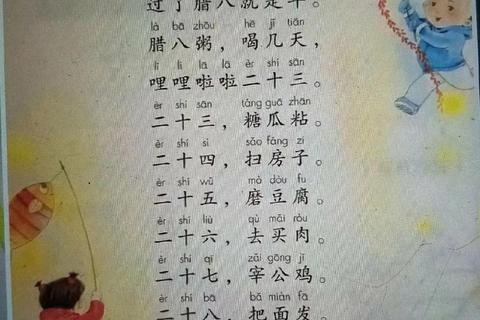 过了腊八就是年。
là bā zhōu hē jǐ tiān
腊八粥，喝几天，
lì li lā lā èr shí sān
哩哩啦啦二十三。
èr shí sān táng guā zhān
二十三，糖瓜粘。
èr shí sì sǎo fáng zi
二十四，扫房子。
èr shí wǔ mò dòu fu
二十五，磨豆腐。
èr shí liù qù mǎi ròu
二十六，去买肉。
èr shí qī zǎi gōng jī
二十七，宰公鸡。
èr shí bā bǎ miàn fā
二十八，把面发。